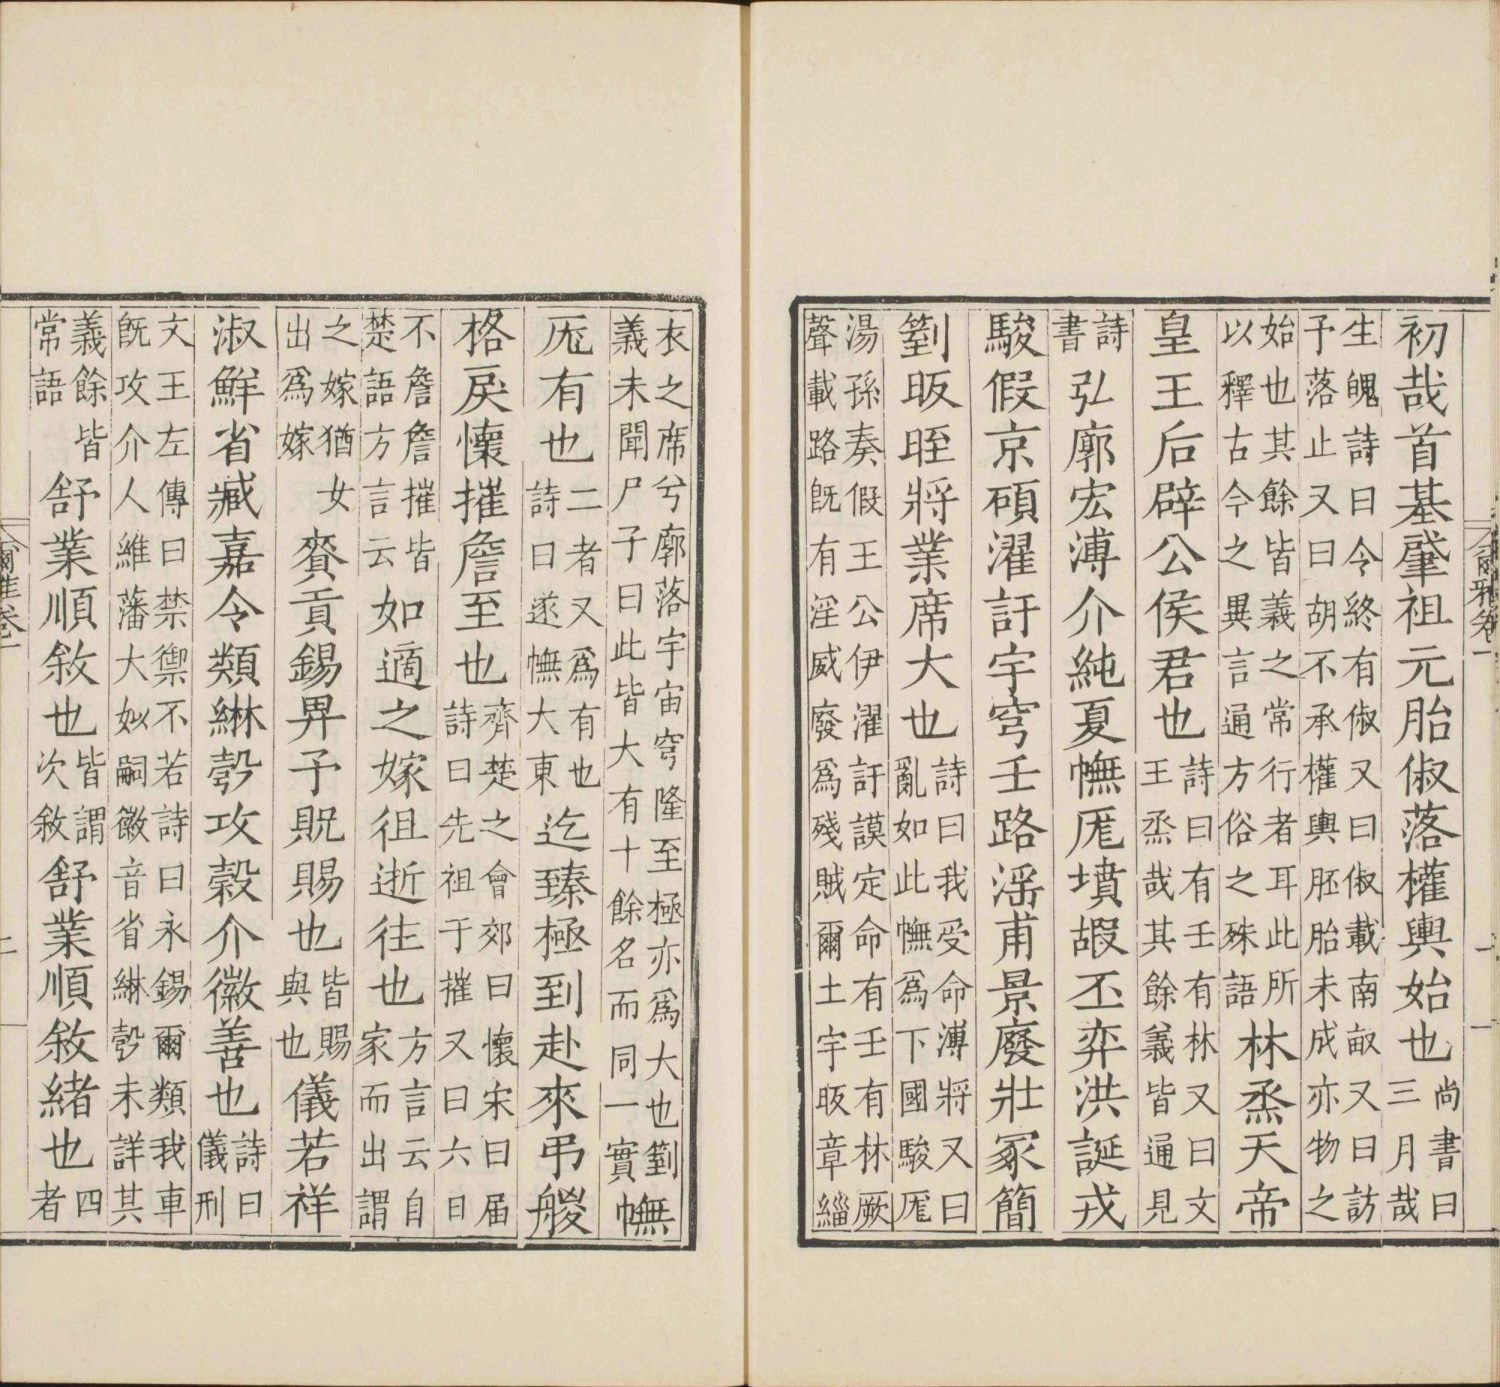 爾雅卷一
一
初哉首基肇祖元胎俶落權輿始也尚書曰三月哉
生魄詩曰令終有俶又曰俶載南畝又曰訪
予落止又曰胡不承權輿胚胎未成亦物之
始也其餘皆義之常行者耳此所以釋古今之異言通方俗之殊語林烝天帝
皇王后辟公侯君也詩曰有壬有林又曰文王烝哉其餘義皆通見
詩書弘廓宏溥介純夏幠厖墳嘏丕弈洪誕戎
駿假京碩濯訏宇穹壬路淫甫景廢壯冢簡
箌昄晊將業席大也詩曰我受命溥將又曰亂如此幠爲下國駿厖
湯孫奏假王公伊濯訏謨定命有壬有林厥
聲載路旣有淫威廢爲殘賊爾土宇昄章緇
衣之席兮廓落宇宙穹隆至極亦爲大也箌義未聞尸子曰此皆大有十餘名而同一實幠
厖有也二者又爲有也詩曰遂幠大東迄臻極到赴來弔艐
格戾懷摧詹至也齊楚之會郊曰懷宋曰屆詩曰先祖于摧又曰六日
不詹詹摧皆楚語方言云如適之嫁徂逝往也方言云自家而出謂
之嫁猶女出爲嫁賚貢錫畀予貺賜也皆賜與也儀若祥
淑鮮省臧嘉令類綝彀攻穀介徽善也詩曰儀刑
文王左傳曰禁禦不若詩曰永錫爾類我車
旣攻介人維藩大姒嗣徽音省綝彀未詳其
義餘皆常語舒業順敘也皆謂次敘舒業順敘緒也四者
爾雅卷一
二